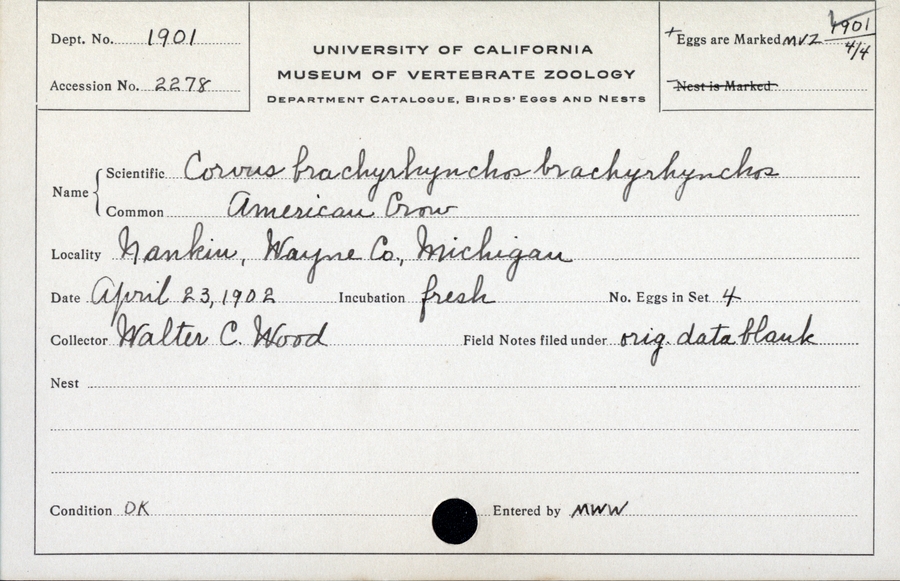 Dept. No. 1901
Accession No. 2278
UNIVERSITY OF CALIFORNIA
MUSEUM OF VERTEBRATE ZOOLOGY
DEPARTMENT CATALOGUE, BIRDS' EGGS AND NESTS
+Eggs are Marked MVZ 1901
4/4
Nest is Marked
Name Scientific Corvus brachyrhynchos brachyrhynchos
Common American Crow
Locality Nankin, Wayne Co., Michigan
Date April 23, 1902 Incubation fresh No. Eggs in Set 4
Collector Walter C. Wood Field Notes filed under orig. data blank
Nest
Condition OK Entered by MWW